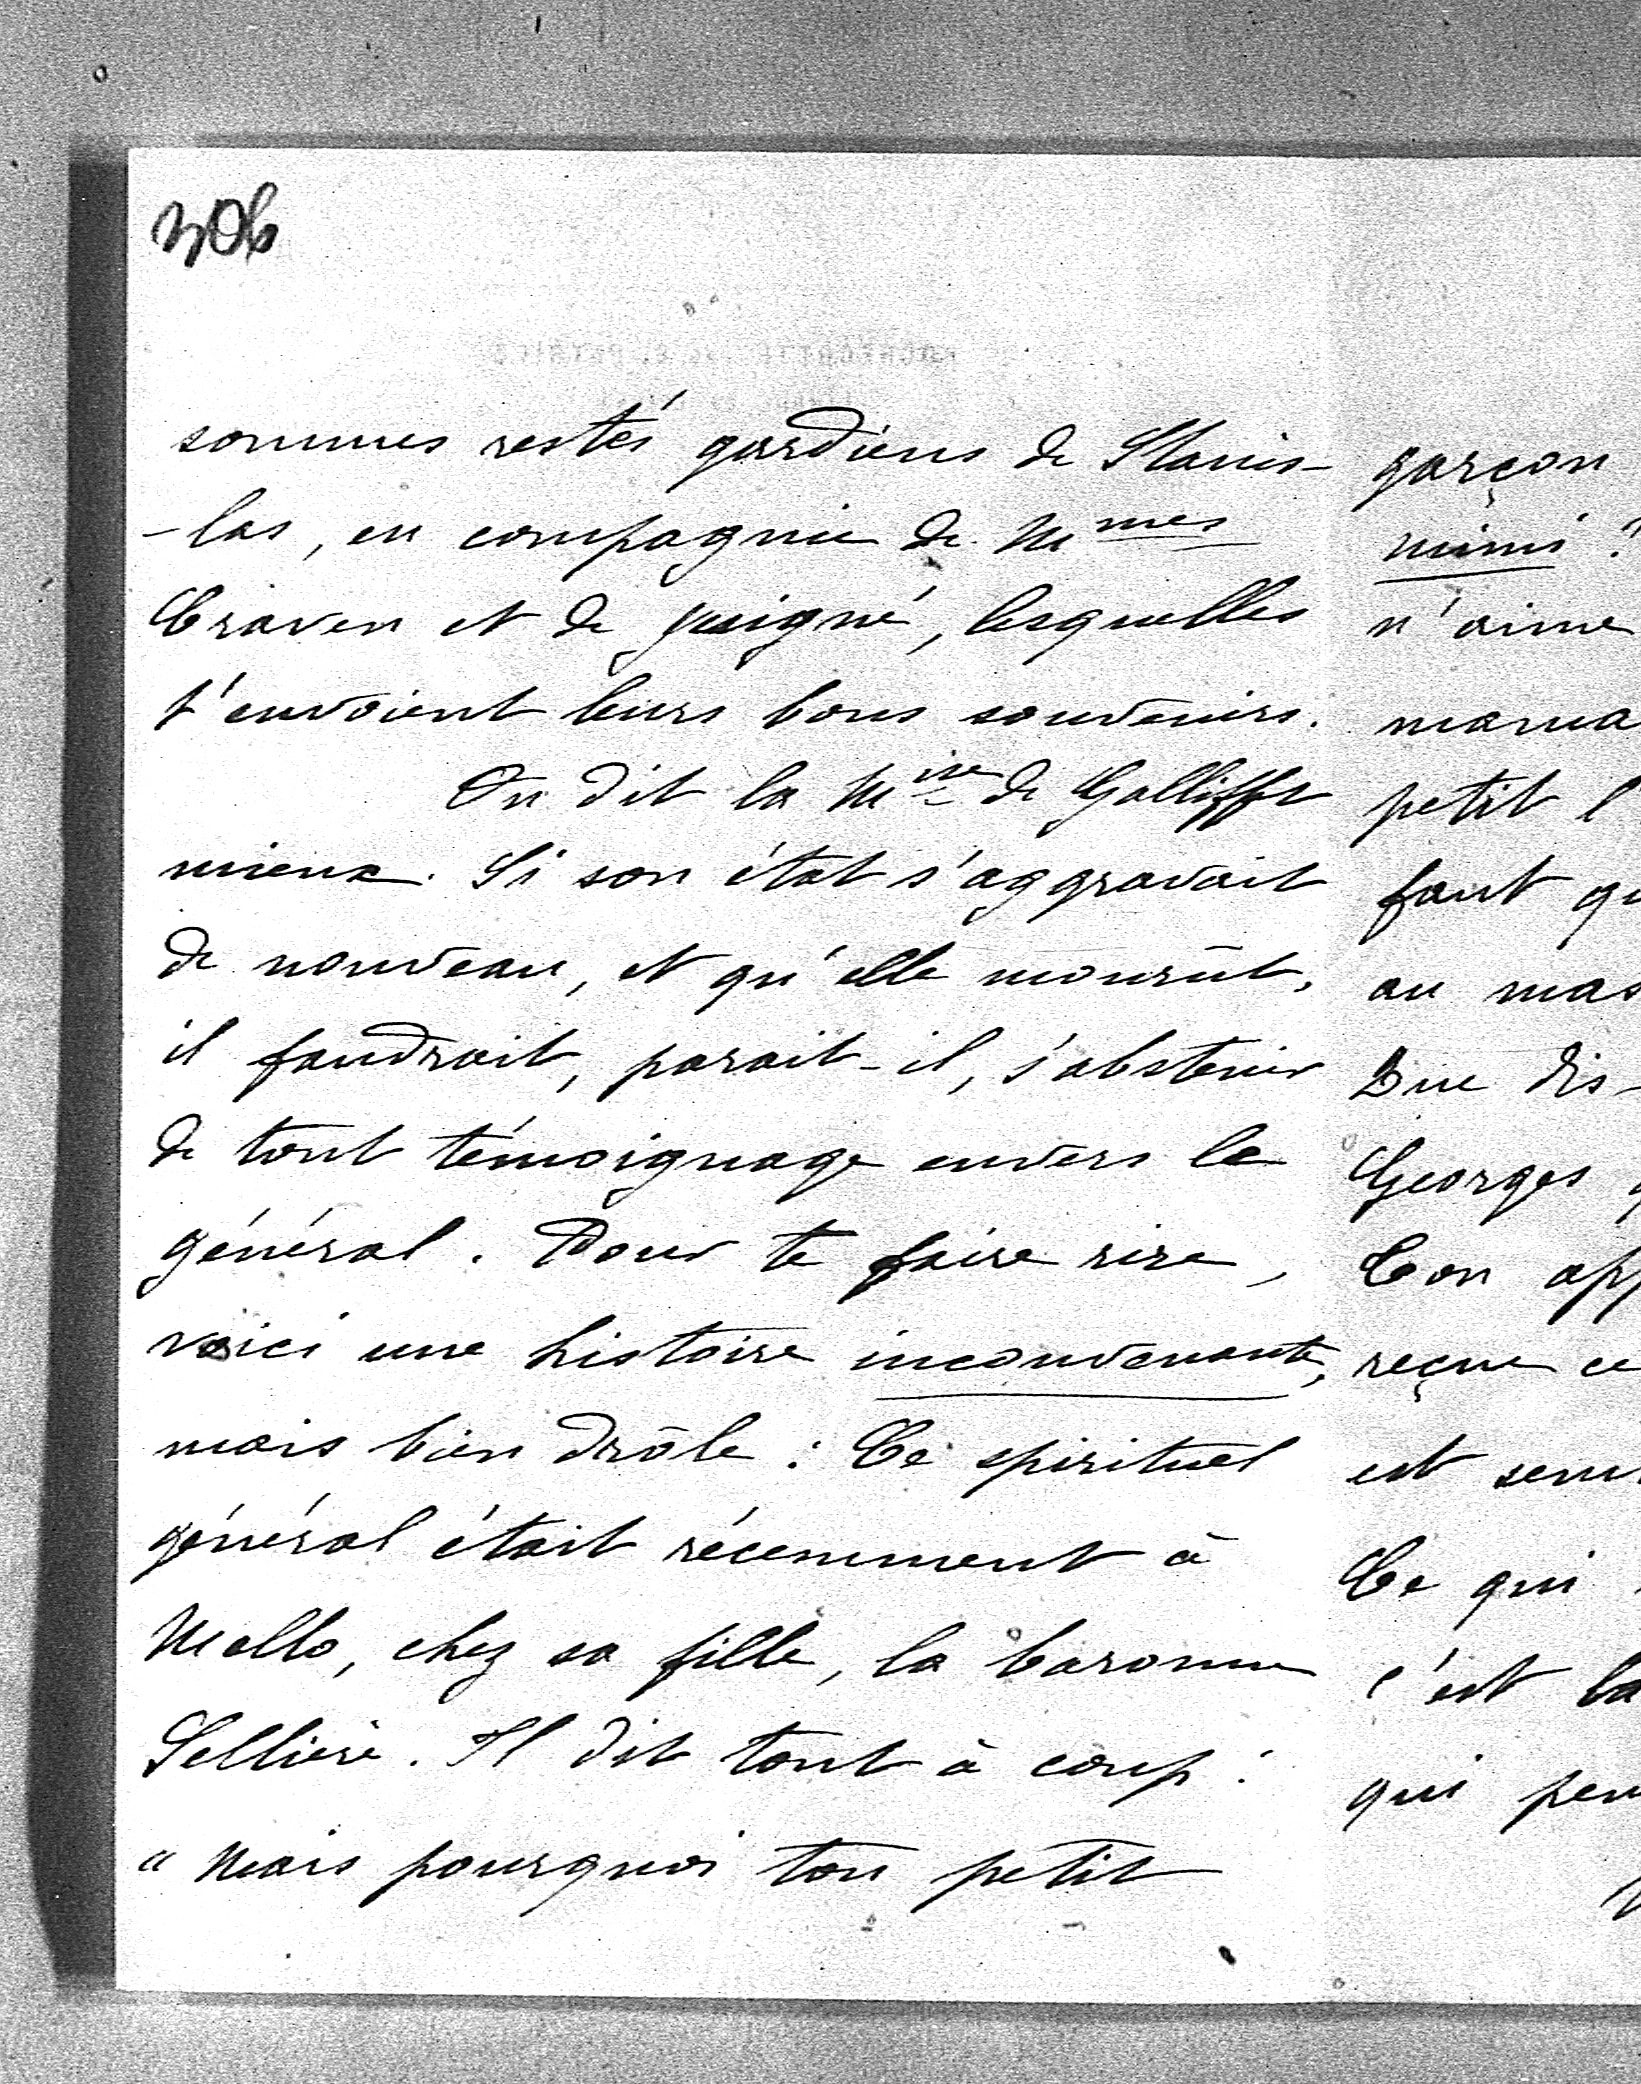 306
sommes restés gardiens de Stanis-
-las, en compagnie de Mmes
Craven et de Juigné, lesquelles
t'envoient leurs bons souvenirs.
On dit la Mise de Galliffet
mieux. Si son état s'aggravait
de nouveau, et qu'elle mourût,
il faudrait, parait-il, s'abstenir
de tout témoignage envers le
général. Pour te faire rire,
voici une histoire inconvenante,
mais bien drôle : Ce spirituel
général était récemment à
Mello, chez sa fille, la baronne
Sellière. Il dit tout à coup :
" Mais pourquoi ton petit
garçon
mimi ?
n'aime
mama
petit l
faut qu
au mas
Due dis-
Georges
Con app
reçue ce
est sem
Ce qui
c'est la
qui peu